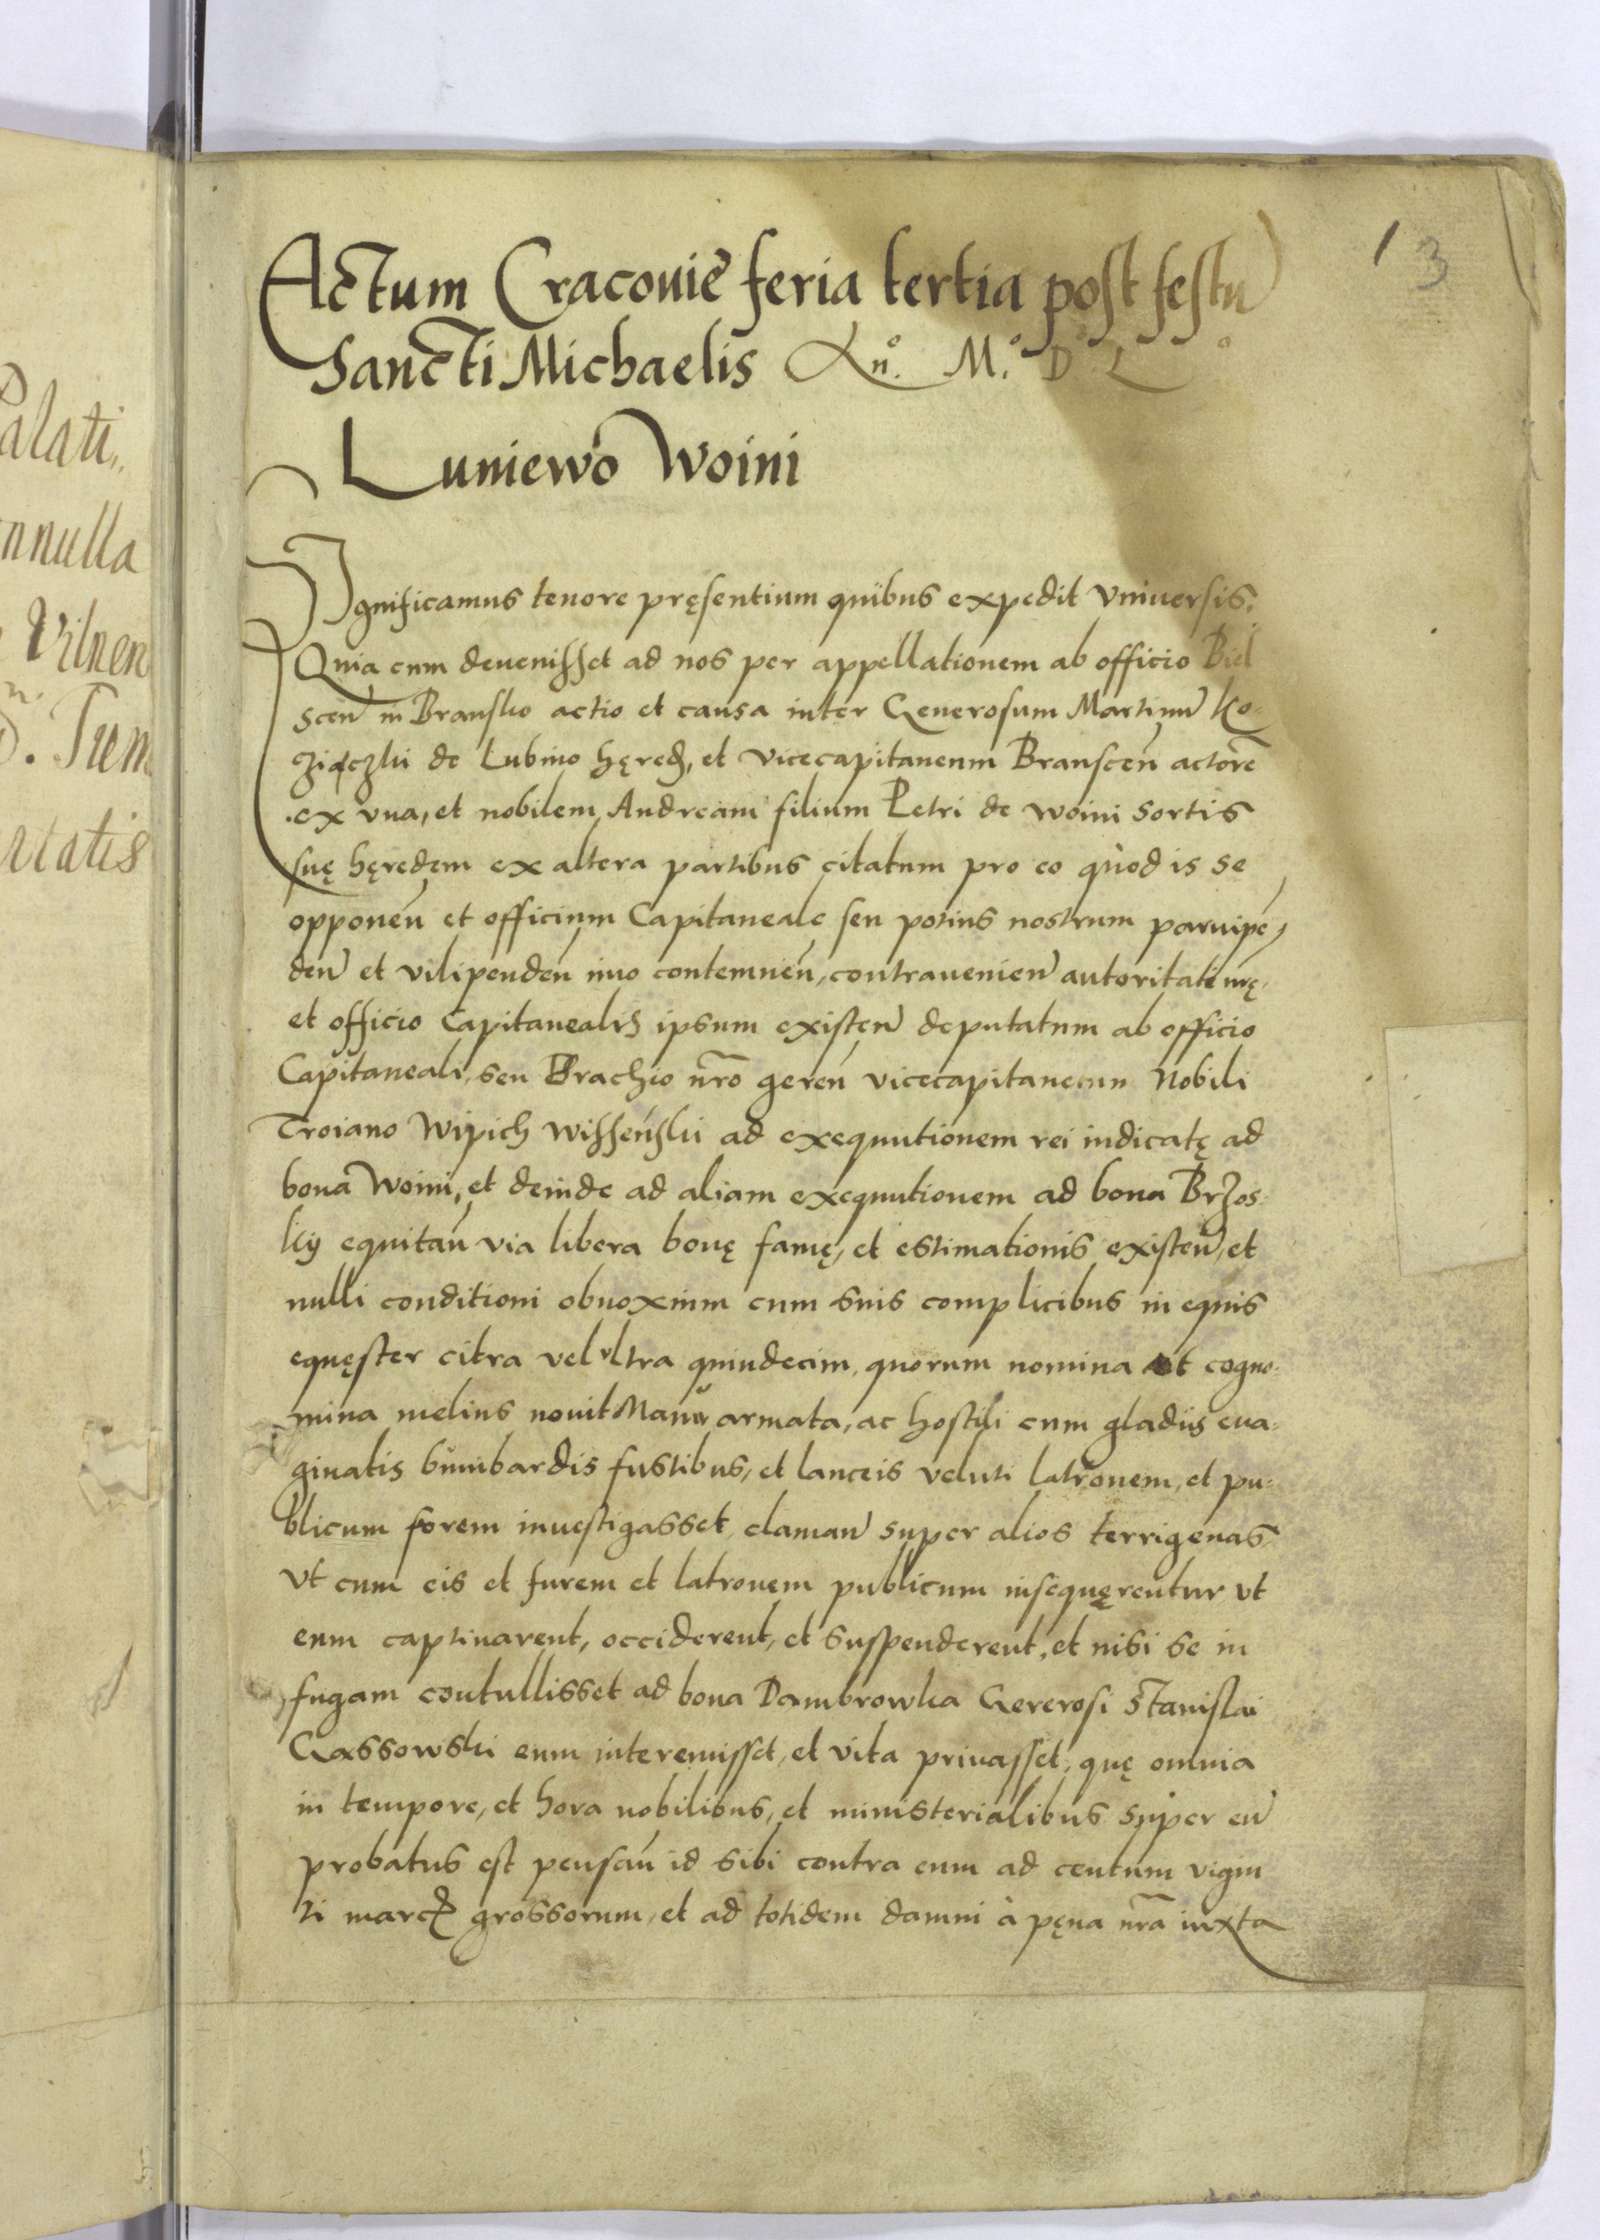 1 3
Actum Cracouie feria tertia post festū
Sancti Michaelis An̊. M.̊ D L ̊
Luniewo Woini
Significamus tenore pręsentium quibus expedit vniuersis.
Quia cum deuenisset ad nos per appellationem ab officio Biel
scen̄ in Bransko actio et causa inter Generosum Martinū Ko-
ziączki de Lubino hęred, et vicecapitaneum Branscen̄ actorē
ex vna, et nobilem Andream filium Petri de woini sortis
suę hęredem ex altera partibus citatum pro eo quod is se
opponen̄ et officium Capitaneale seu potius nostrum paruipē
den̄ et vilipenden̄ imo contemnen̄, contrauenien̄ autoritati nrę.
et officio Capitanealis ipsum existen̄ deputatum ab officio
Capitaneali, seu Brachio nr̄o geren̄ vicecapitaneum Nobili
Troiano Wipich Wissenski ad exequutionem rei iudicatę ad
bona Woini, et deinde ad aliam exequutionem ad bona Brzos-
kij equitan̄ via libera bonę famę, et estimationis existen̄, et
nulli conditioni obnoxium cum suis complicibus in equis
equęster citra vel vltra quindecim, quorum nomina et cogno-
mina melius nouit Manu armata, ac hostili cum gladiis eua-
ginatis bumbardis fustibus, et lanceis veluti latronem, et pu-
blicum forem inuestigasset, claman̄ super alios terrigenas
vt cum eis et furem et latronem publicum insequęrentur vt
eum captiuarent, occiderent, et suspenderent, et nisi se in
fugam contullisset ad bona Dambrowka Gererosi Stanislai
Gassowski eum interemisset, et vita priuasset, quę omnia
in tempore, et hora nobilibus, et ministerialibus super eū
probatus est pensan̄ id sibi contra eum ad centum vigin
ti marcȩ grossorum, et ad totidem damni à pęna nr̄a iuxta
alati,,
nnulla
Vilnen
tatis